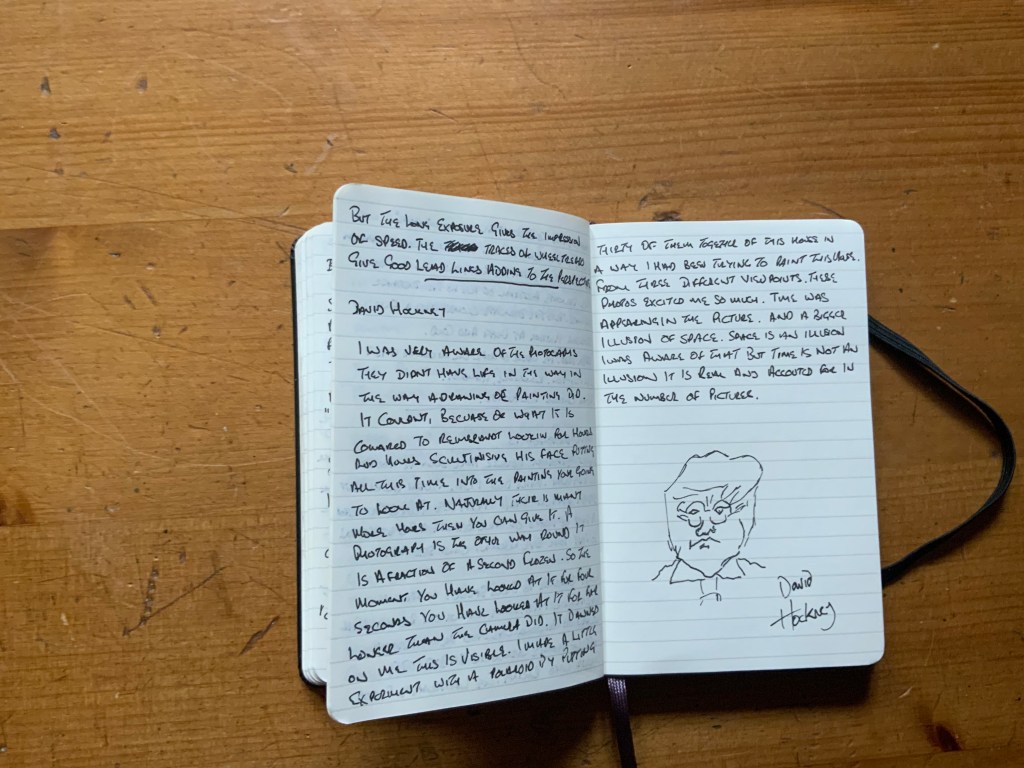 BUT THE LONG EXPOSURE GIVES THE IMPRESSION
OF SPEED. THE TRACES OF WHEEL TREAD
GIVE GOOD LEAD LINES ADDING TO THE
DAVID HOCKNEY
I WAS VERY AWARE OF THE PHOTOGRAPHS
THEY DIDNT HAVE LIFE IN THE WAY IN
THE WAY A DRAWING OR PAINTING DID.
IT COULDNT, BECUASE OF WHAT IT IS
COMPARED TO REMBRANDT LOOKIN FOR HOURS
AND HOURS SCRUTINISING HIS FACE PUTTING
ALL THIS TIME INTO THE PAINTING YOUR GOING
TO LOOK AT. NATURALLY THEIR IS MANY
MORE HOURS THEN YOU CAN GIVE IT. A
PHOTOGRAPH IS THE OTHER WAY ROUND IT
IS A FRACTION OF A SECOND FROZEN. SO THE
MOMENT YOU HAVE LOOKED AT IT FOR FOUR
SECONDS YOU HAVE LOOKED AT IT FOR FAR
LONGER THAN THE CAMERA DID. IT DAWNED
ON ME THIS IS VISIBLE. I MADE A LITTLE
EXPERIMENT WITH A POLAROID BY PUTTING
THIRTY OF THEM TOGETHER OF THIS HOUSE IN
A WAY I HAD BEEN TRYING TO PAINT THIS HOUSE.
FROM THREE DIFFERENT VIEWPOINTS. THESE
PHOTOS EXCITED ME SO MUCH. TIME WAS
APPEARING IN THE PICTURE. AND A BIGGER
ILLUSION OF SPACE. SPACE IS AN ILLUSION
I WAS AWARE OF THAT BUT TIME IS NOT AN
ILLUSION IT IS REAL AND ACCOUTED FOR IN
THE NUMBER OF PICTURES.
David
Hockney